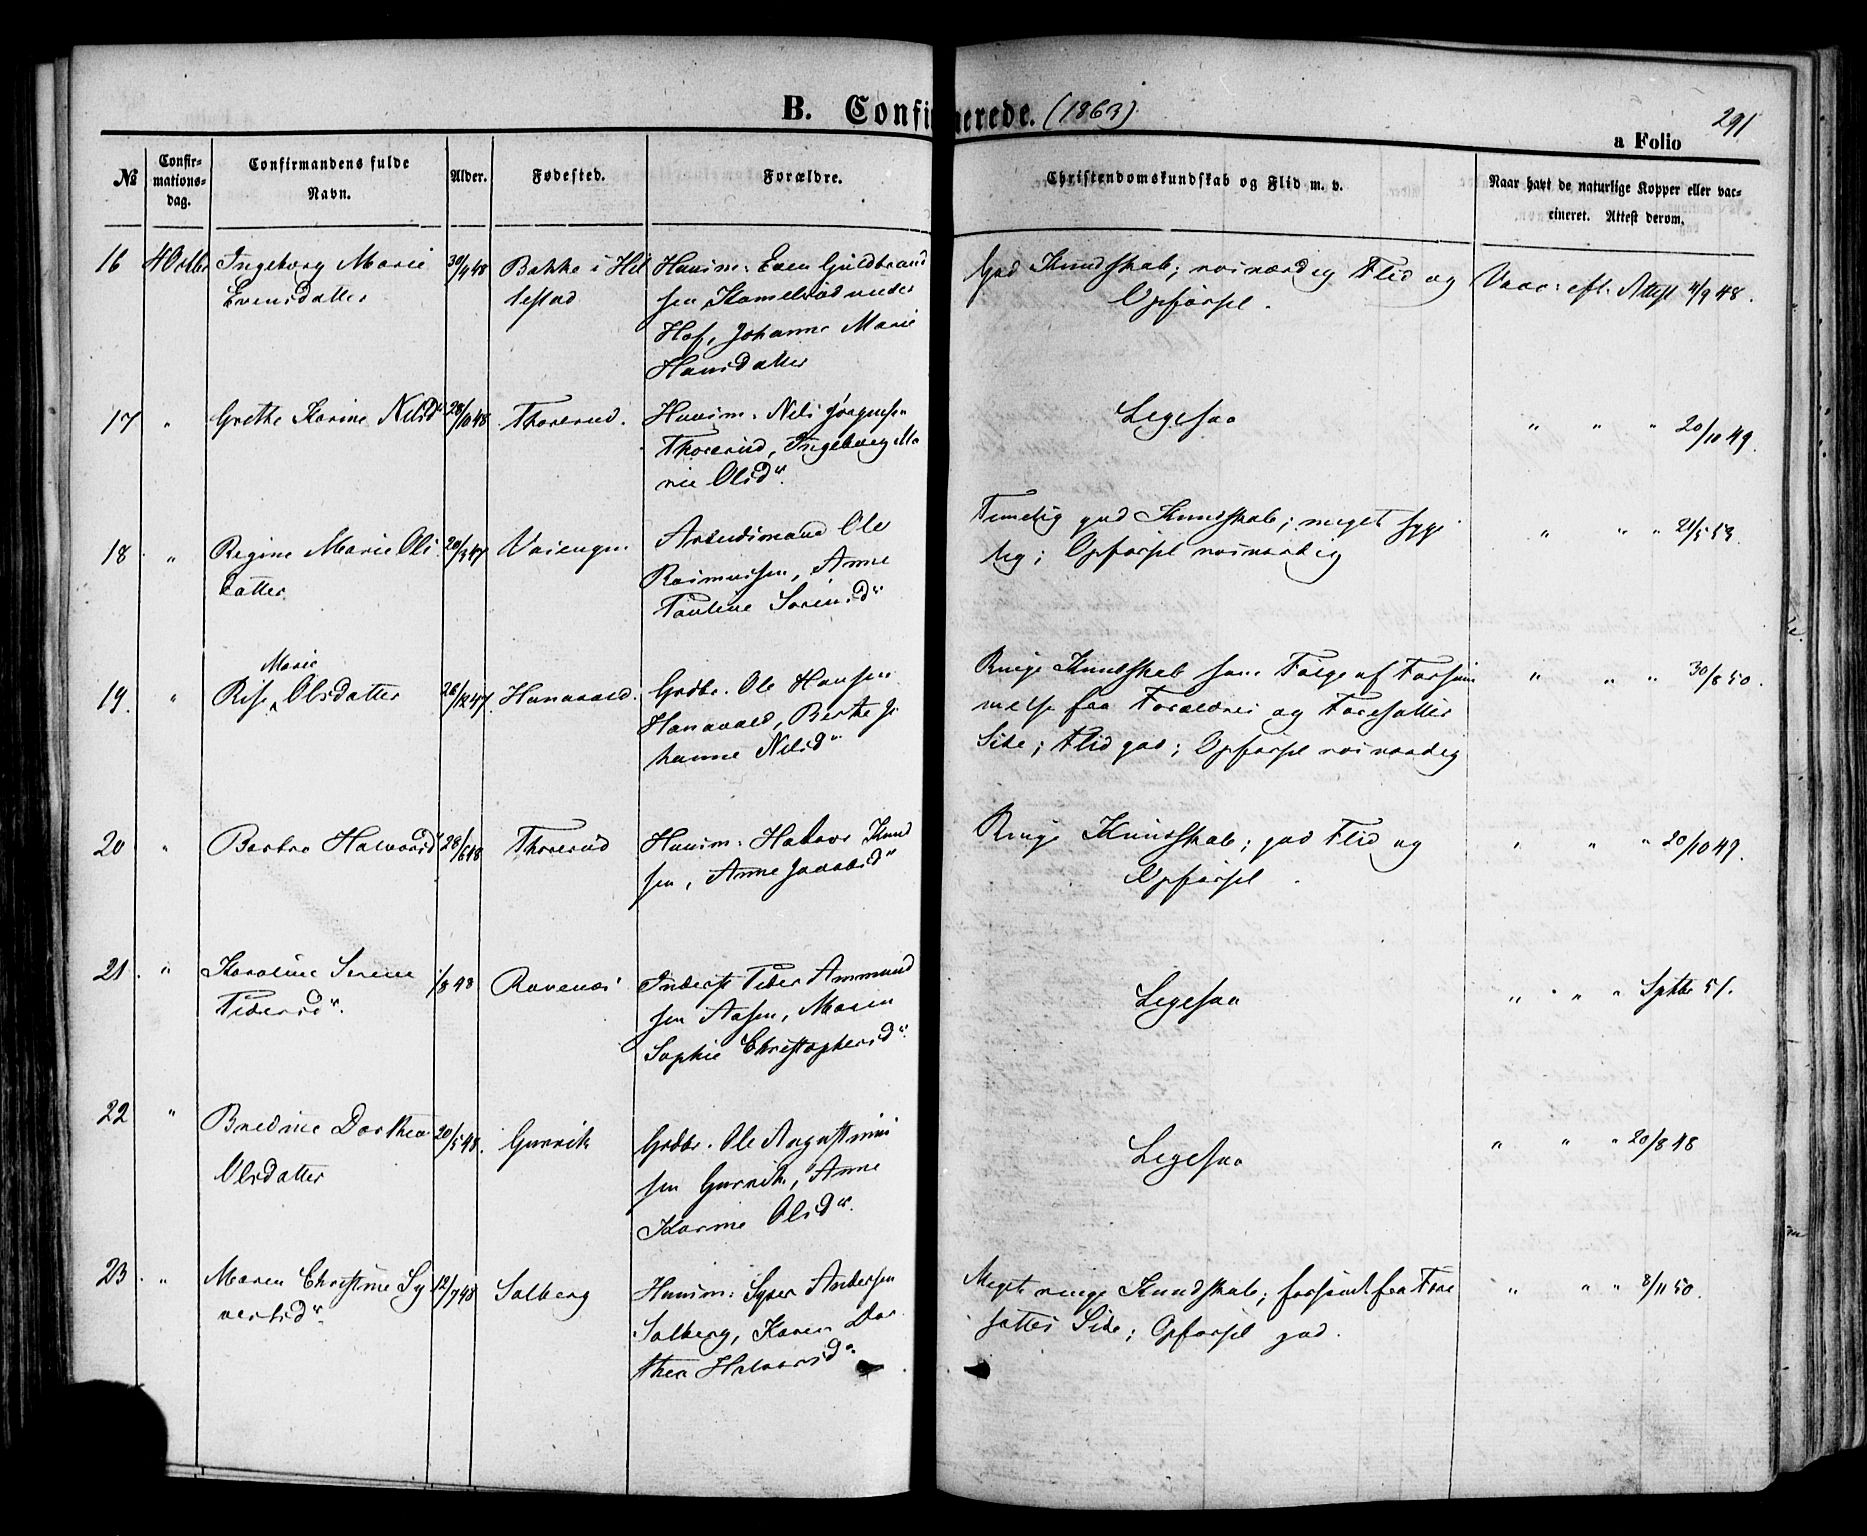 B. Confirmerede. (1863)
291
a Folio
№
Confir-
mations-
dag.
Confirmandens fulde
Navn.
Alder.
Fødested.
Forældre.
Christendomskundskab og Flid m. v.
Naar havt de naturlige Kopper eller vac-
cineret. Attest derom.
16 4 Octbr Ingeborg Marie
Evensdatter
30/9 48
Bakke i Hil
lestad
Huusm: Even Guldbrand
sen Kamelrød under
Hof, Johanne Marie
Hansdatter
God Kundskab; roesværdig Flid og
Opførsel.
Vacc: efl: Attest 11/9 48.
17 " Grethe Karine Nilsdr
28/10 48
Thorerud.
Huusm: Nils Jørgensen
Thorerud, Ingeborg Ma
rie Olsdr.
Ligesaa
" " " 20/10 49
18 " Regine Marie Ols
datter
20/3 47
Vaiengen
Arbeidsmand Ole
Rasmussen, Anne
Pauline Sørensdr
Temelig god Kundskab; meget syge
lig; Opførsel roesværdig
" " " 21/5 53.
19. " Rise Marie Olsdatter
26/12 47.
Hanavald.
Grdbr. Ole Hansen
Hanavald, Berthe Jo
hanne Nilsdr
Ringe Kundskab som Følge af Forsøm
melse fra Forældres og Foresattes
Side; Flid god; Opførsel roesværdig
" " " 30/8 50.
20 " Barbro Halvorsdr
28/6 48
Thorerud
Huusm: Halvor Knud
sen, Anne Jacobsdr
Ringe Kundskab; god Flid og
Opførsel.
" " " 20/10 49.
21. " Karoline Serine
Pedersdr.
1/8 48
Ravenæs
Inderst Peder Ammund
sen Aasen, Maren
Sophie Christophersdr.
Ligesaa
" " " Sptbr 51.
22 " Bredine Dorthea
Olsdatter
20/5 48.
Gurvik
Grdbr. Ole Augustinus
sen Gurvik, Anne
Karine Olsdr.
Ligesaa
" " " 20/8 48
23. " Maren Christine Sy
vertsdr.
12/7 48
Solberg
Huusm: Syver Andersen
Solberg, Karen Dor
thea Halvorsdr
Meget ringe Kundskab; forsømt fra Fore
sattes Side; Opførsel god.
" " " 8/11 50.